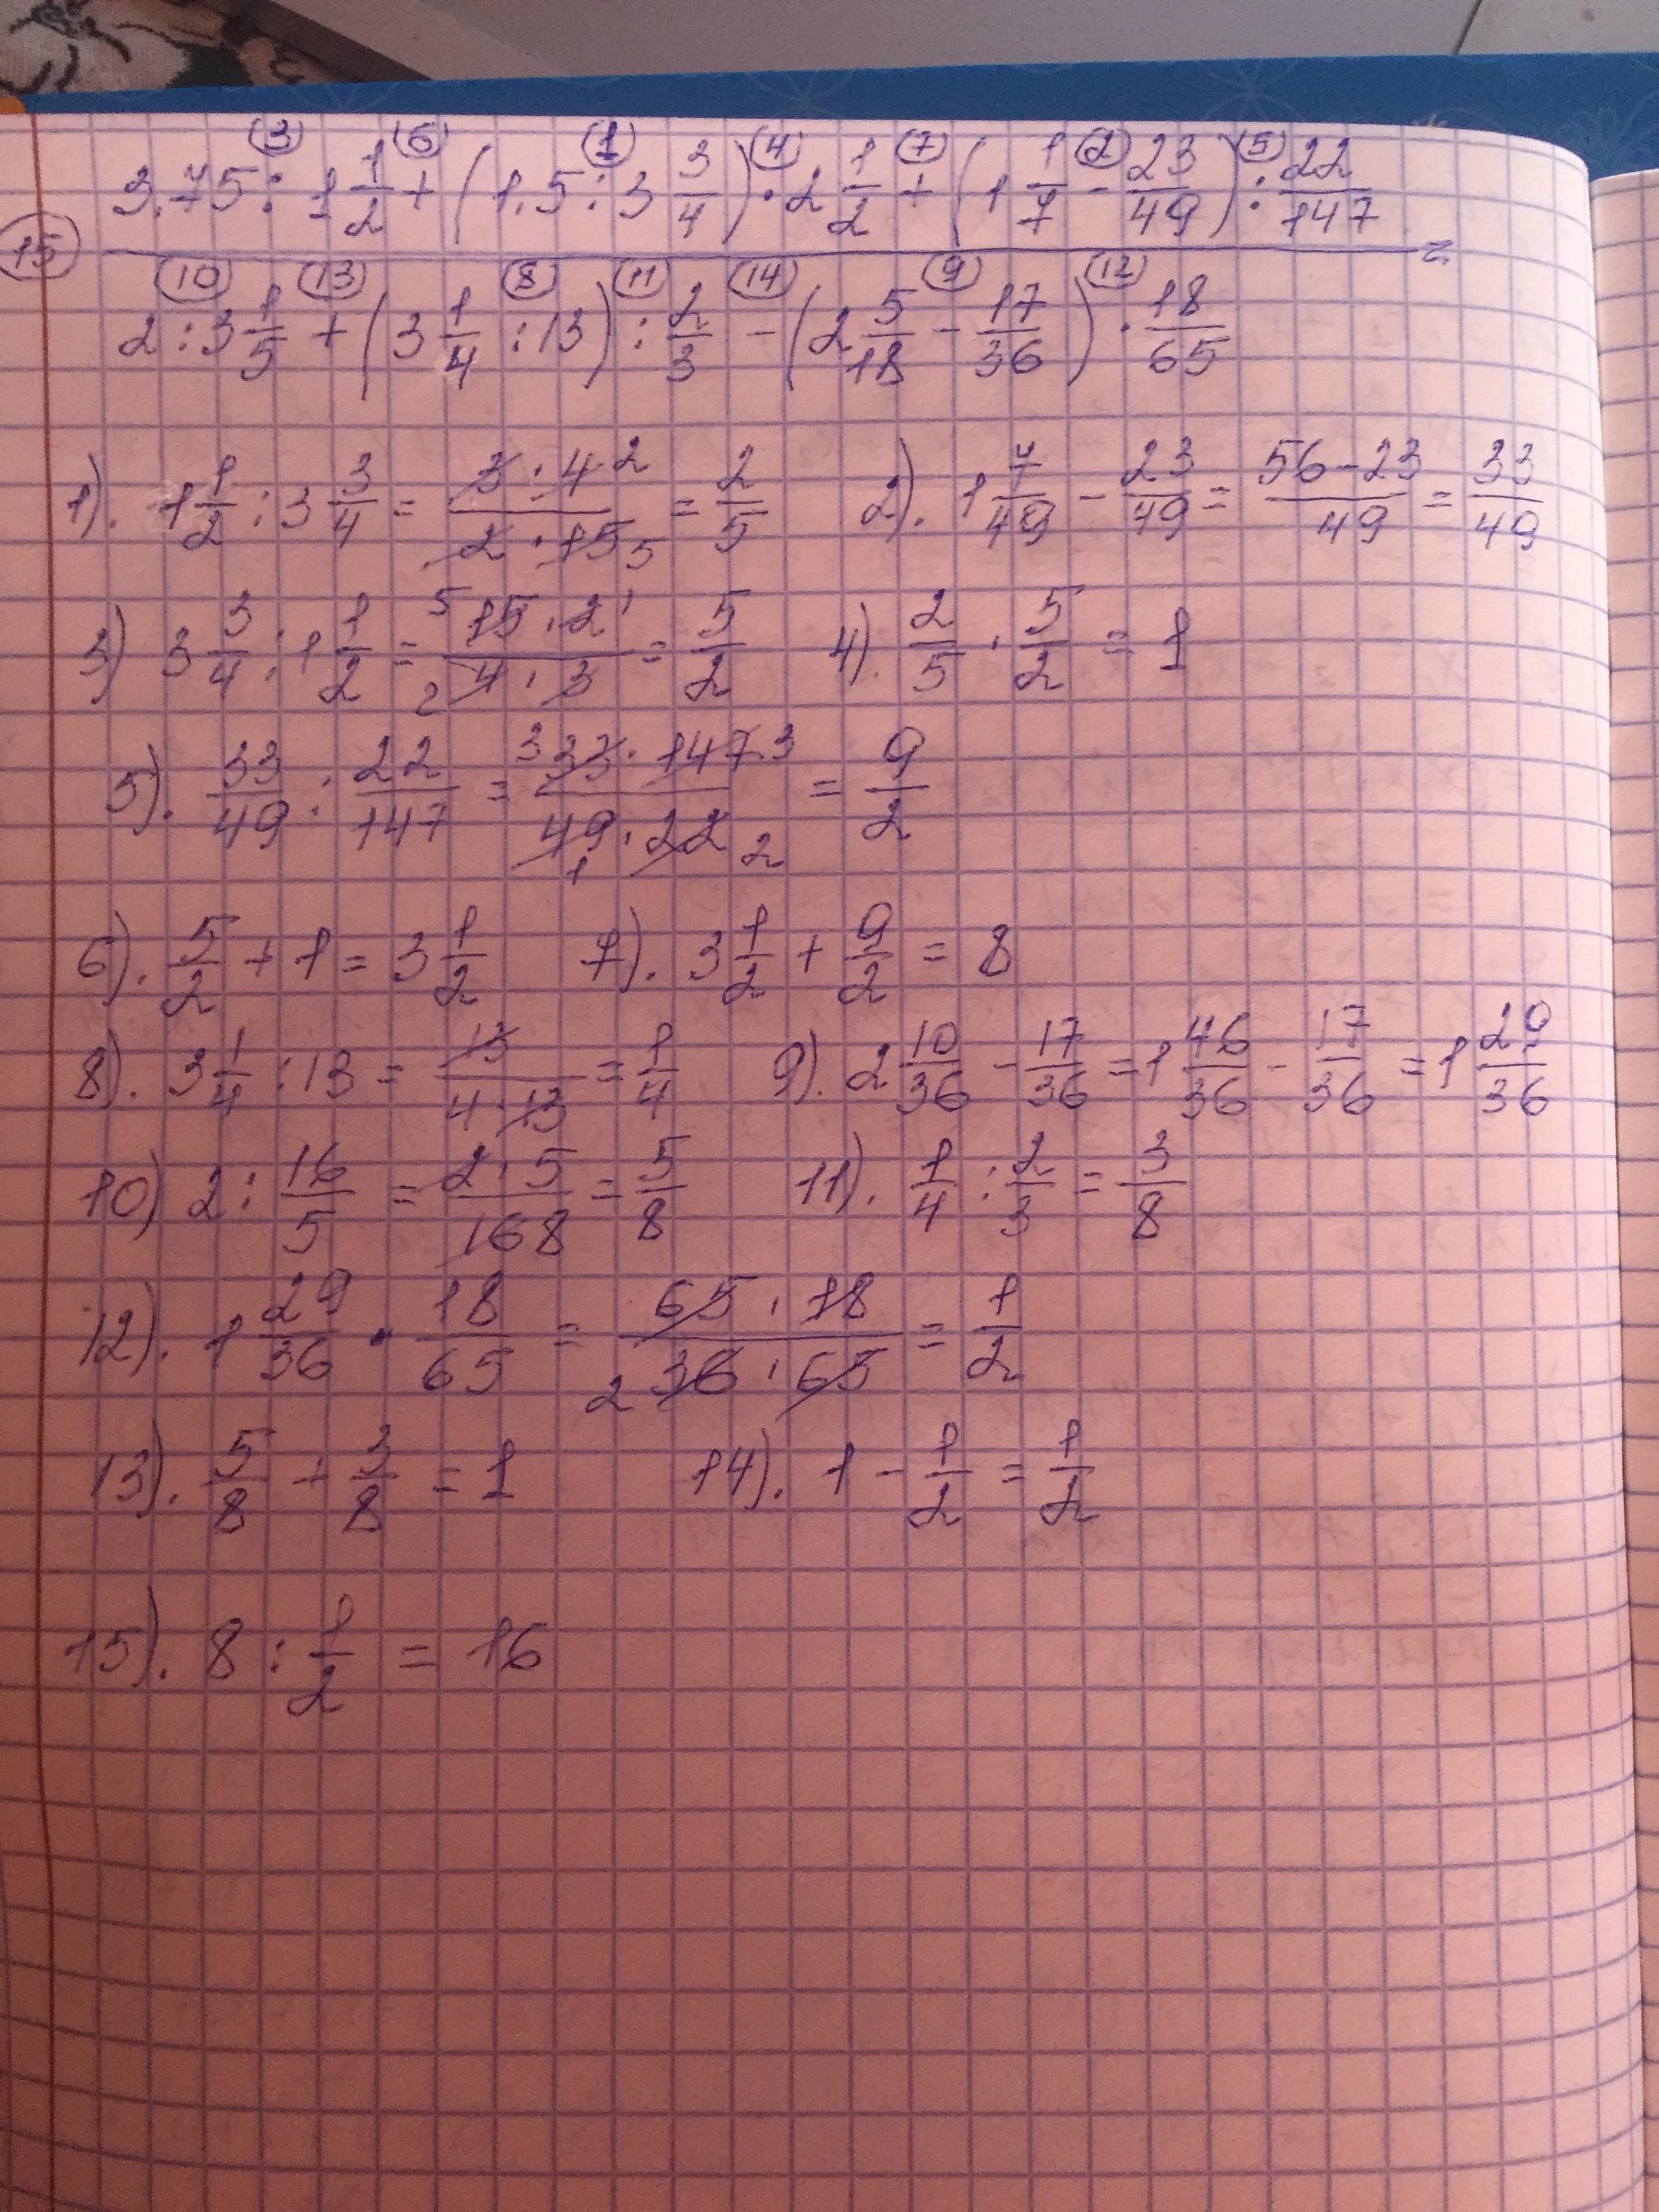 ③ ⑥ ① ④ ⑦ ② ⑤
3,75 : 1 1/2 + (1,5 : 3 3/4) · 2 1/2 + (1 1/7 - 23/49) : 22/147
⑮ =
⑩ ⑬ ⑧ ⑪ ⑭ ⑨ ⑫
2 : 3 1/5 + (3 1/4 : 13) : 2/3 - (2 5/18 - 17/36) · 18/65
1). 1 1/2 : 3 3/4 = 3 · 4 2 / 2 · 15 5 = 2/5 2). 1 7/49 - 23/49 = 56-23/49 = 33/49
3) 3 3/4 : 1 1/2 = 5 15 · 2 1 / 2 4 · 3 = 5/2 4). 2/5 · 5/2 = 1
5). 33/49 : 22/147 = 3 33 · 147 3 / 49 1 · 22 2 = 9/2
6). 5/2 + 1 = 3 1/2 7). 3 1/2 + 9/2 = 8
8). 3 1/4 : 13 = 13 / 4 · 13 = 1/4 9). 2 10/36 - 17/36 = 1 46/36 - 17/36 = 1 29/36
10) 2 : 16/5 = 2 · 5 / 16 8 = 5/8 11). 1/4 : 2/3 = 3/8
12). 1 29/36 · 18/65 = 65 · 18 / 2 36 · 65 = 1/2
13). 5/8 + 3/8 = 1 14). 1 - 1/2 = 1/2
15). 8 : 1/2 = 16